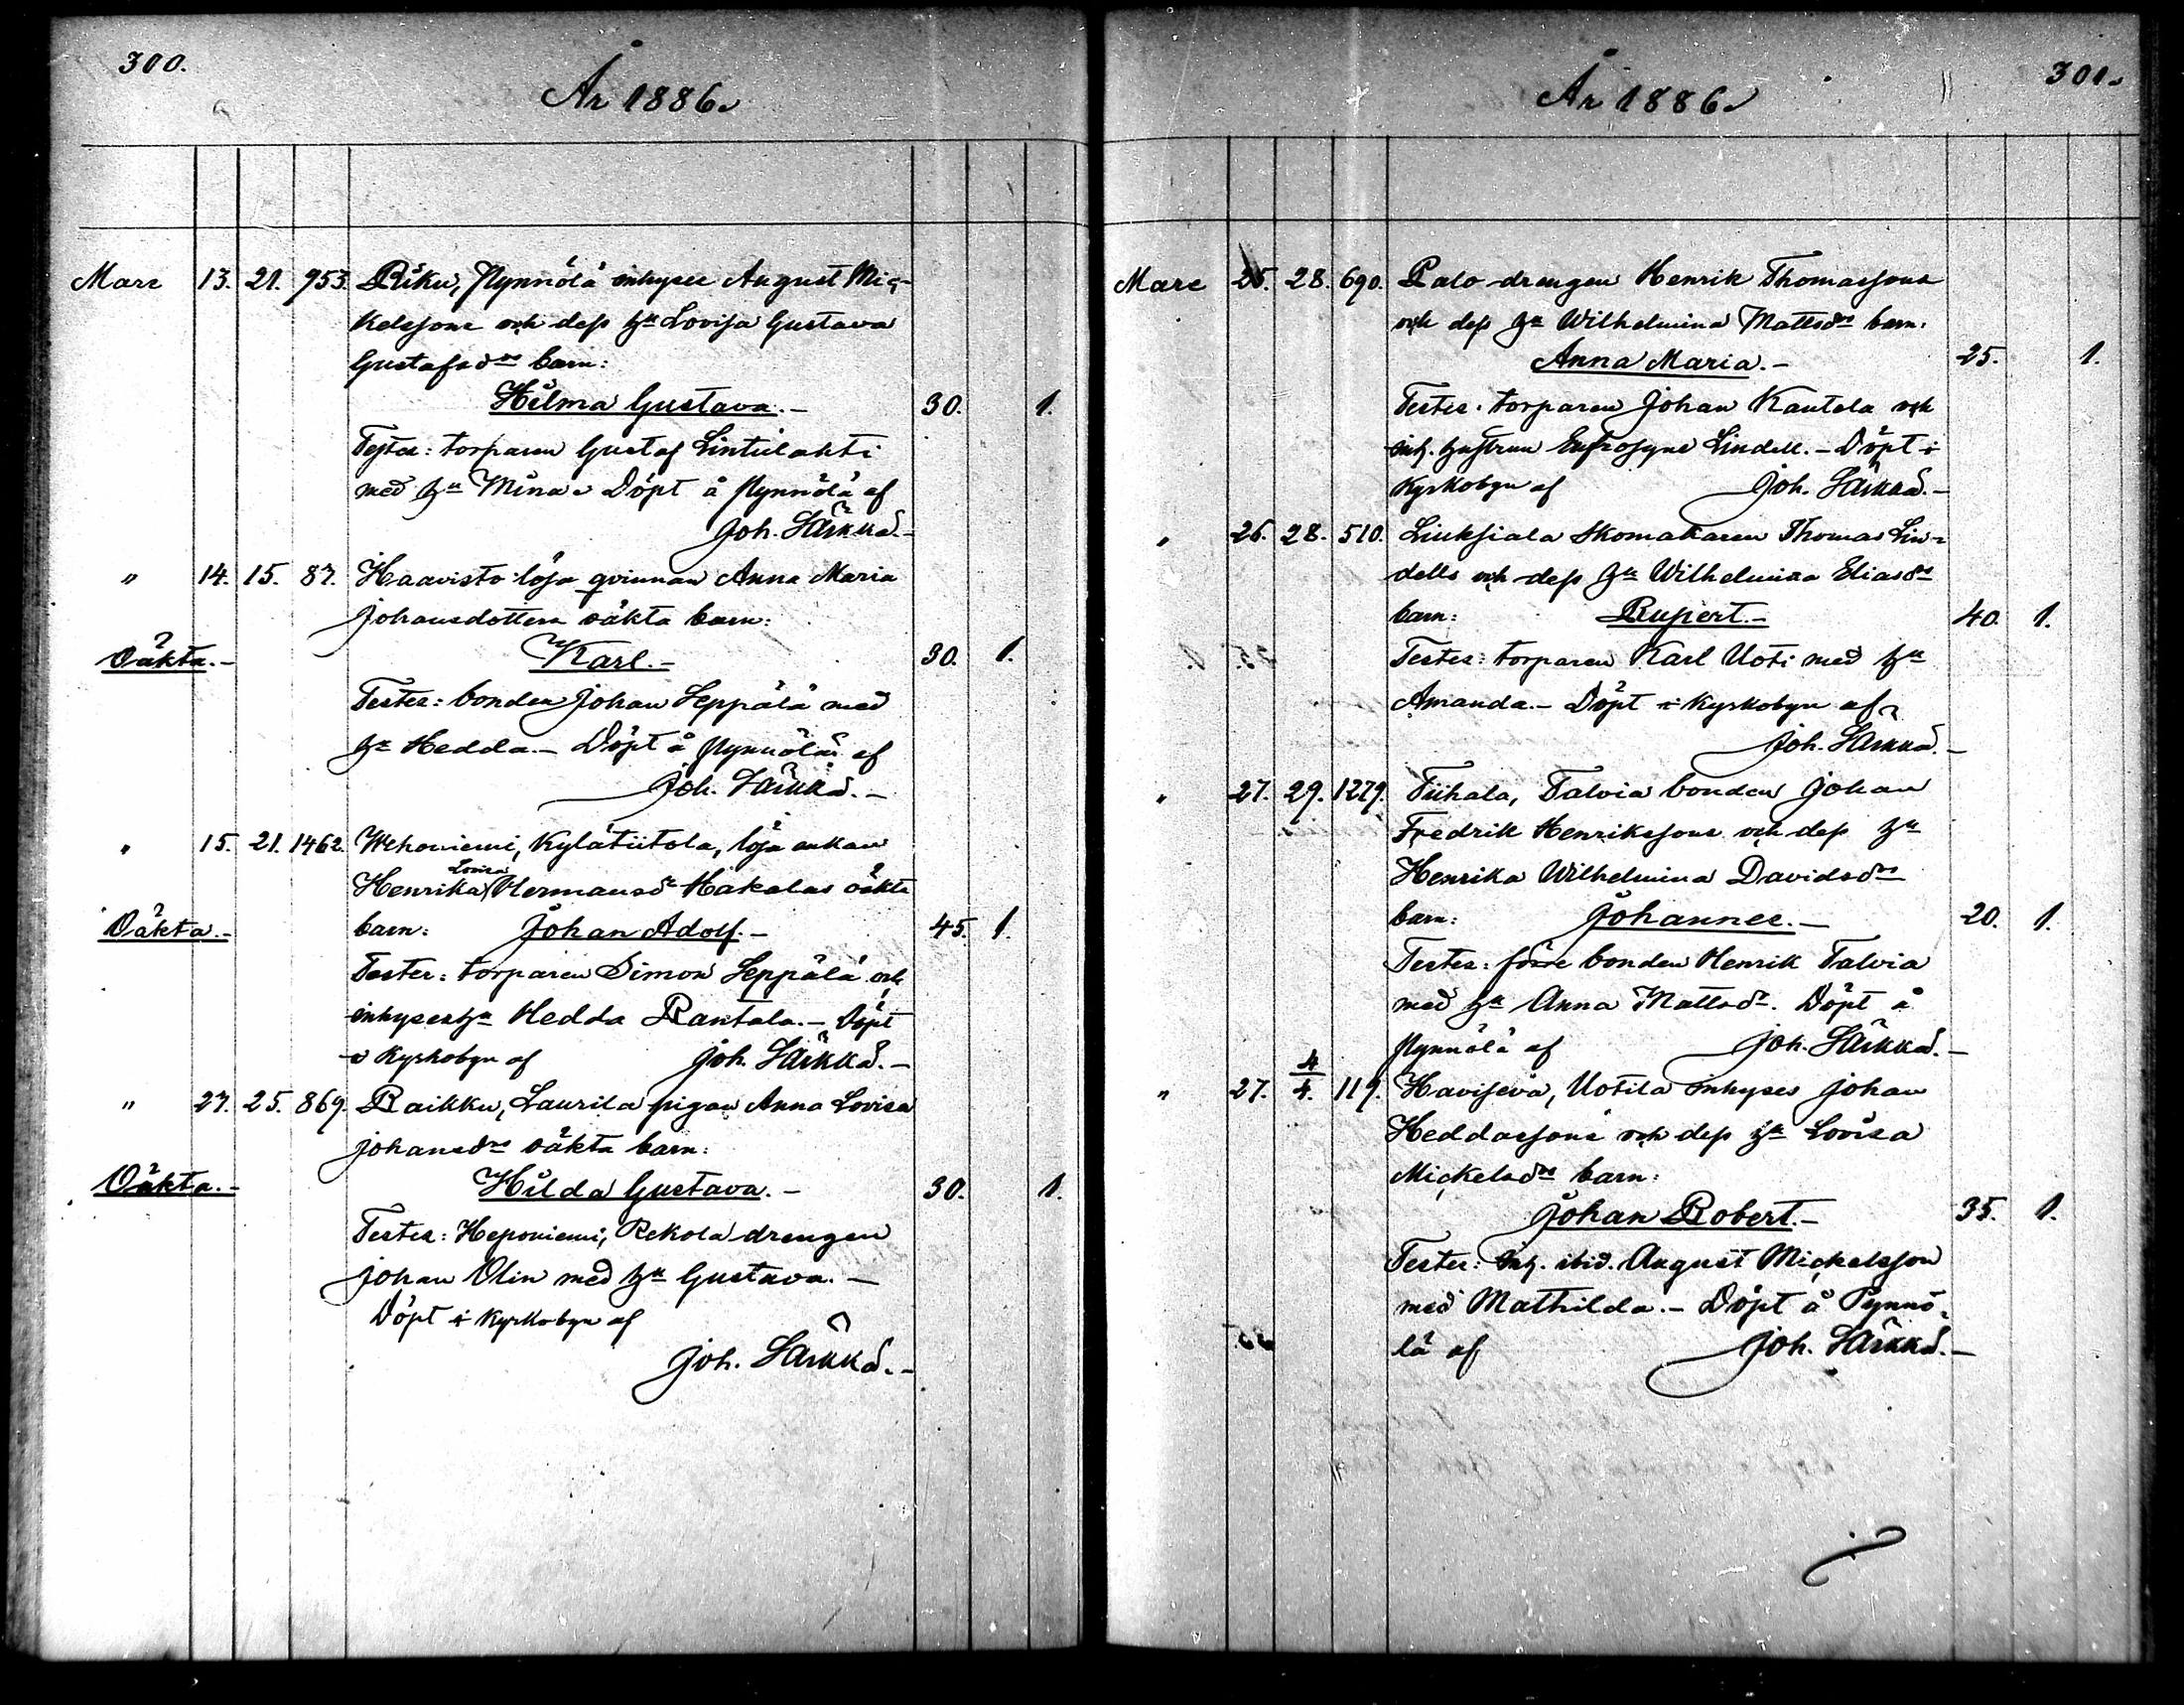 300.
År 1886.
Mars 13. 21. 953. Riku, Pynnölä inhyses August Mic-
kelssons och dess hu Lovisa Gustava
Gustafsdrs barn:
Hilma Gustava.- 30. 1.
Testes: torparen Gustaf Lintulahti
med hu Mina. Döpt å Pynnölä af
Joh. Särkkä.-
" 14. 15. 87. Haavisto lösa qvinnan Anna Maria
Johansdotters oäkta barn:
Oäkta.- Karl.- 30. 1.
Testes: bonden Johan Seppälä med
hu Hedda.- Döpt å Pynnölä af
Joh. Särkkä.-
" 15. 21. 1462. Wehoniemi, Kylätiitola, lösa enkan
Lovisa
Henrika Hermansdr Hakalas oäkta
Oäkta.- barn: Johan Adolf.- 45. 1.
Testes: torparen Simon Seppälä och
inhyseshu Hedda Rantala.- Döpt
i Kyrkobyn af Joh. Särkkä.-
" 27. 25. 869. Raikku, Laurila pigan Anna Lovisa
Johansdrs oäkta barn:
Oäkta.- Hilda Gustava.- 30. 1.
Testes: Heponiemi, Rekola drengen
Johan Olin med hu Gustava.-
Döpt i Kyrkobyn af
Joh. Särkkä.-
301.
År 1886.
Mars 25. 28. 690. Palo drengen Henrik Thomassons
och dess hu Wilhelmina Mattsdrs barn:
Anna Maria.- 25. 1.
Testes: torparen Johan Kantola och
inh. hustrun Eufrosyne Lindell.- Döpt i
Kyrkobyn af Joh. Särkkä.-
" 26. 28. 510. Liuksiala skomakaren Thomas Lin-
dells och dess hu Wilhelmina Eliasdrs
barn: Rupert.- 40. 1.
Testes: torparen Karl Uoti med hu
Amanda.- Döpt i Kyrkobyn af
Joh. Särkkä.-
" 27. 29. 1279. Tiihala, Talvia bonden Johan
Fredrik Henrikssons och dess hu
Henrika Wilhelmina Davidsdrs
barn: Johannes.- 20. 1.
Testes: förre bonden Henrik Talvia
med hu Anna Mattsdr. Döpt å
Pynnölä af Joh. Särkkä.-
" 27. 4/4. 119. Haviseva, Uotila inhyses Johan
Heddassons och dess hu Lovisa
Mickelsdrs barn:
Johan Robert.- 35. 1.
Testes: Inh. ibid. August Mickelsson
med Mathilda.- Döpt å Pynnö-
lä af Joh. Särkkä.-